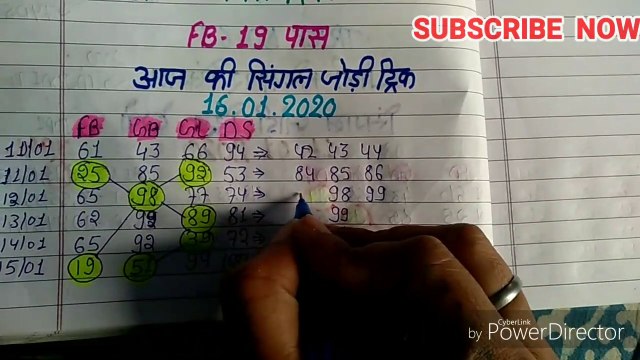 SUBSCRIBE NOW
FB-19 पास
आज की सिंगल जोड़ी ट्रिक
16.01.2020
FB GB GL DS
11/01 61 43 66 94 ⇒ 42 43 44
11/01 25 85 92 53 ⇒ 84 85 86
12/01 65 98 77 74 ⇒ 98 99
13/01 62 99 89 81 ⇒ 99
14/01 65 92 72
15/01 19 51
CyberLink
by PowerDirector